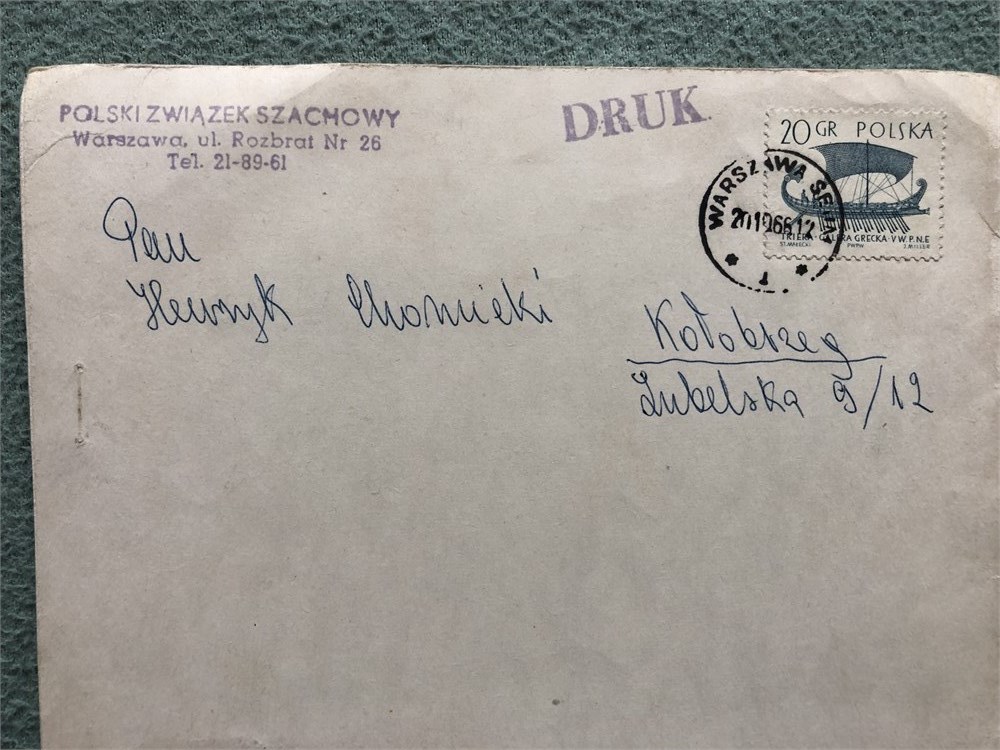 POLSKI ZWIĄZEK SZACHOWY
Warszawa, ul. Rozbrat Nr 26
Tel. 21-89-61
DRUK
20 GR POLSKA
TRIERA · GALERA GRECKA · V W. P. N. E
ST. MAŁECKI PWPW Z. MILLER
WARSZAWA
1
Pan
Henryk
Kołobrzeg
Lubelska 9/12